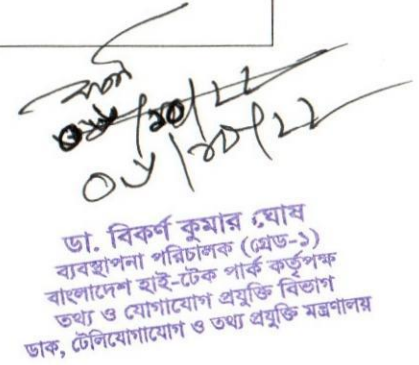 ০৬/১০/২২
ডা. বিকর্ণ কুমার ঘোষ
ব্যবস্থাপনা পরিচালক (গ্রেড-১)
বাংলাদেশ হাই-টেক পার্ক কর্তৃপক্ষ
তথ্য ও যোগাযোগ প্রযুক্তি বিভাগ
ডাক, টেলিযোগাযোগ ও তথ্য প্রযুক্তি মন্ত্রণালয়